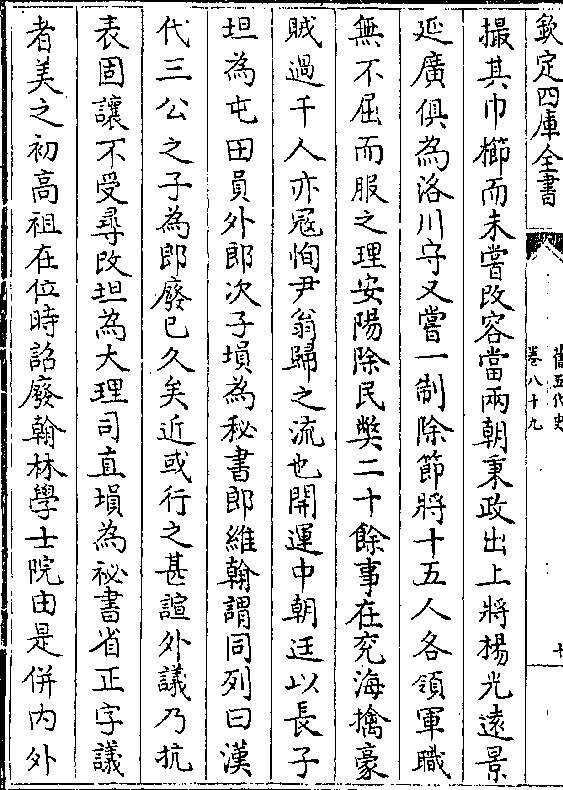 欽定四庫全書
舊五代史
卷八十九
十
撮其巾櫛而未嘗改容當兩朝秉政出上將楊光遠景
延廣俱為洛川守又嘗一制除節將十五人各領軍職
無不屈而服之理安陽除民弊二十餘事在兖海擒豪
賊過千人亦冦恂尹翁歸之流也開運中朝廷以長子
坦為屯田員外郎次子塤為秘書郎維翰謂同列曰漢
代三公之子為郎廢已久矣近或行之甚諠外議乃抗
表固讓不受尋改坦為大理司直塤為祕書省正字議
者美之初高祖在位時詔廢翰林學士院由是併内外